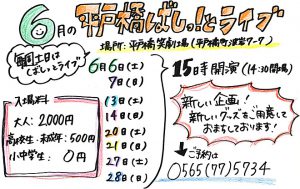 6月の平戸橋ばしっ!とライブ
場所:平戸橋笑劇場(平戸橋町波岩7-7)
毎週土日は
ばしっとライブ
6月6日(土)
7日(日)
13日(土)
14日(日)
20日(土)
21日(日)
27日(土)
28日(日)
15時開演(14:30開場)
入場料
大人:2,000円
高校生・未成年:500円
小中学生:0円
新しい企画!
新しいグッズをご用意して
おまちしております!
ご予約は
0565(77)5734